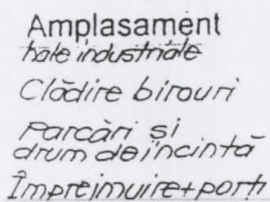 Amplasament
hale industriale
Clădire birouri
Parcări și
drum de incintă
Împrejmuire+porți